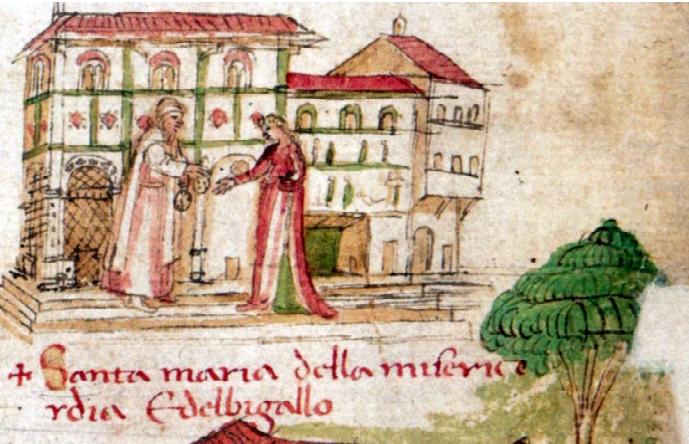 + Santa maria della miserico
rdia Edelbigallo